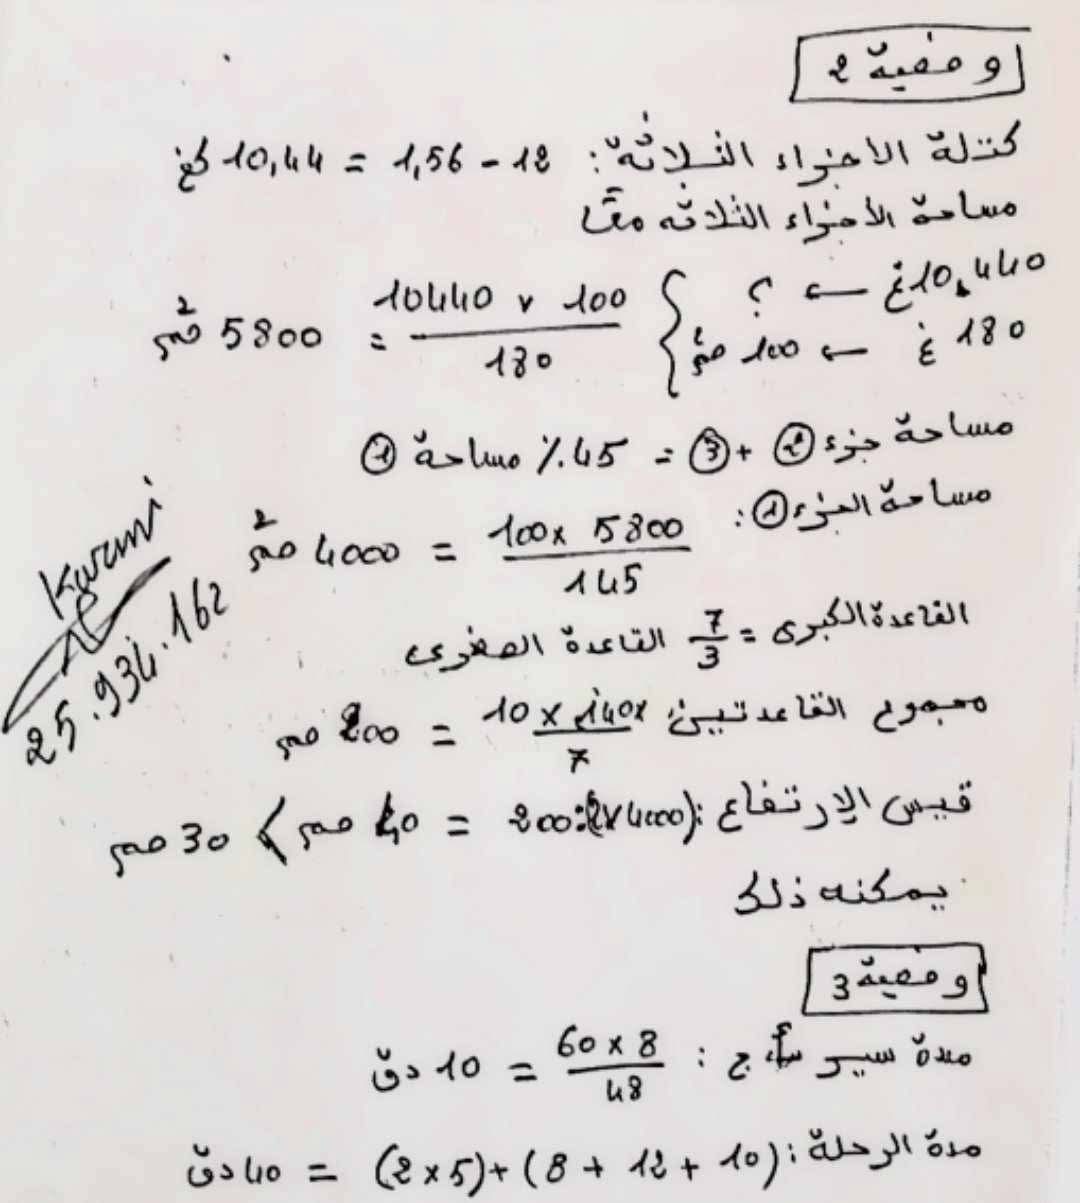 وضعية 2
كتلة الأجزاء الثلاثة: 12 - 1,56 = 10,44 كغ
مساحة الأجزاء الثلاثة معًا
10,440 غ ← ؟
180 غ ← 100 صم²
10440 × 100 / 180 = 5800 صم²
مساحة جزء ② + ③ = 45٪ مساحة ①
مساحة الجزء ①: 100 × 5800 / 145 = 4000 صم²
القاعدة الكبرى = 7/3 القاعدة الصغرى
مجموع القاعدتين: 10 × 140 / 7 = 200 صم
قيس الارتفاع: (2×4000):200 = 40 صم > 30 صم
يمكنه ذلك
وضعية 3
مدة سير أ. ج: 60 × 8 / 48 = 10 دق
مدة الرحلة: (10 + 12 + 8) + (2 × 5) = 40 دق
Karimi
25.934.162